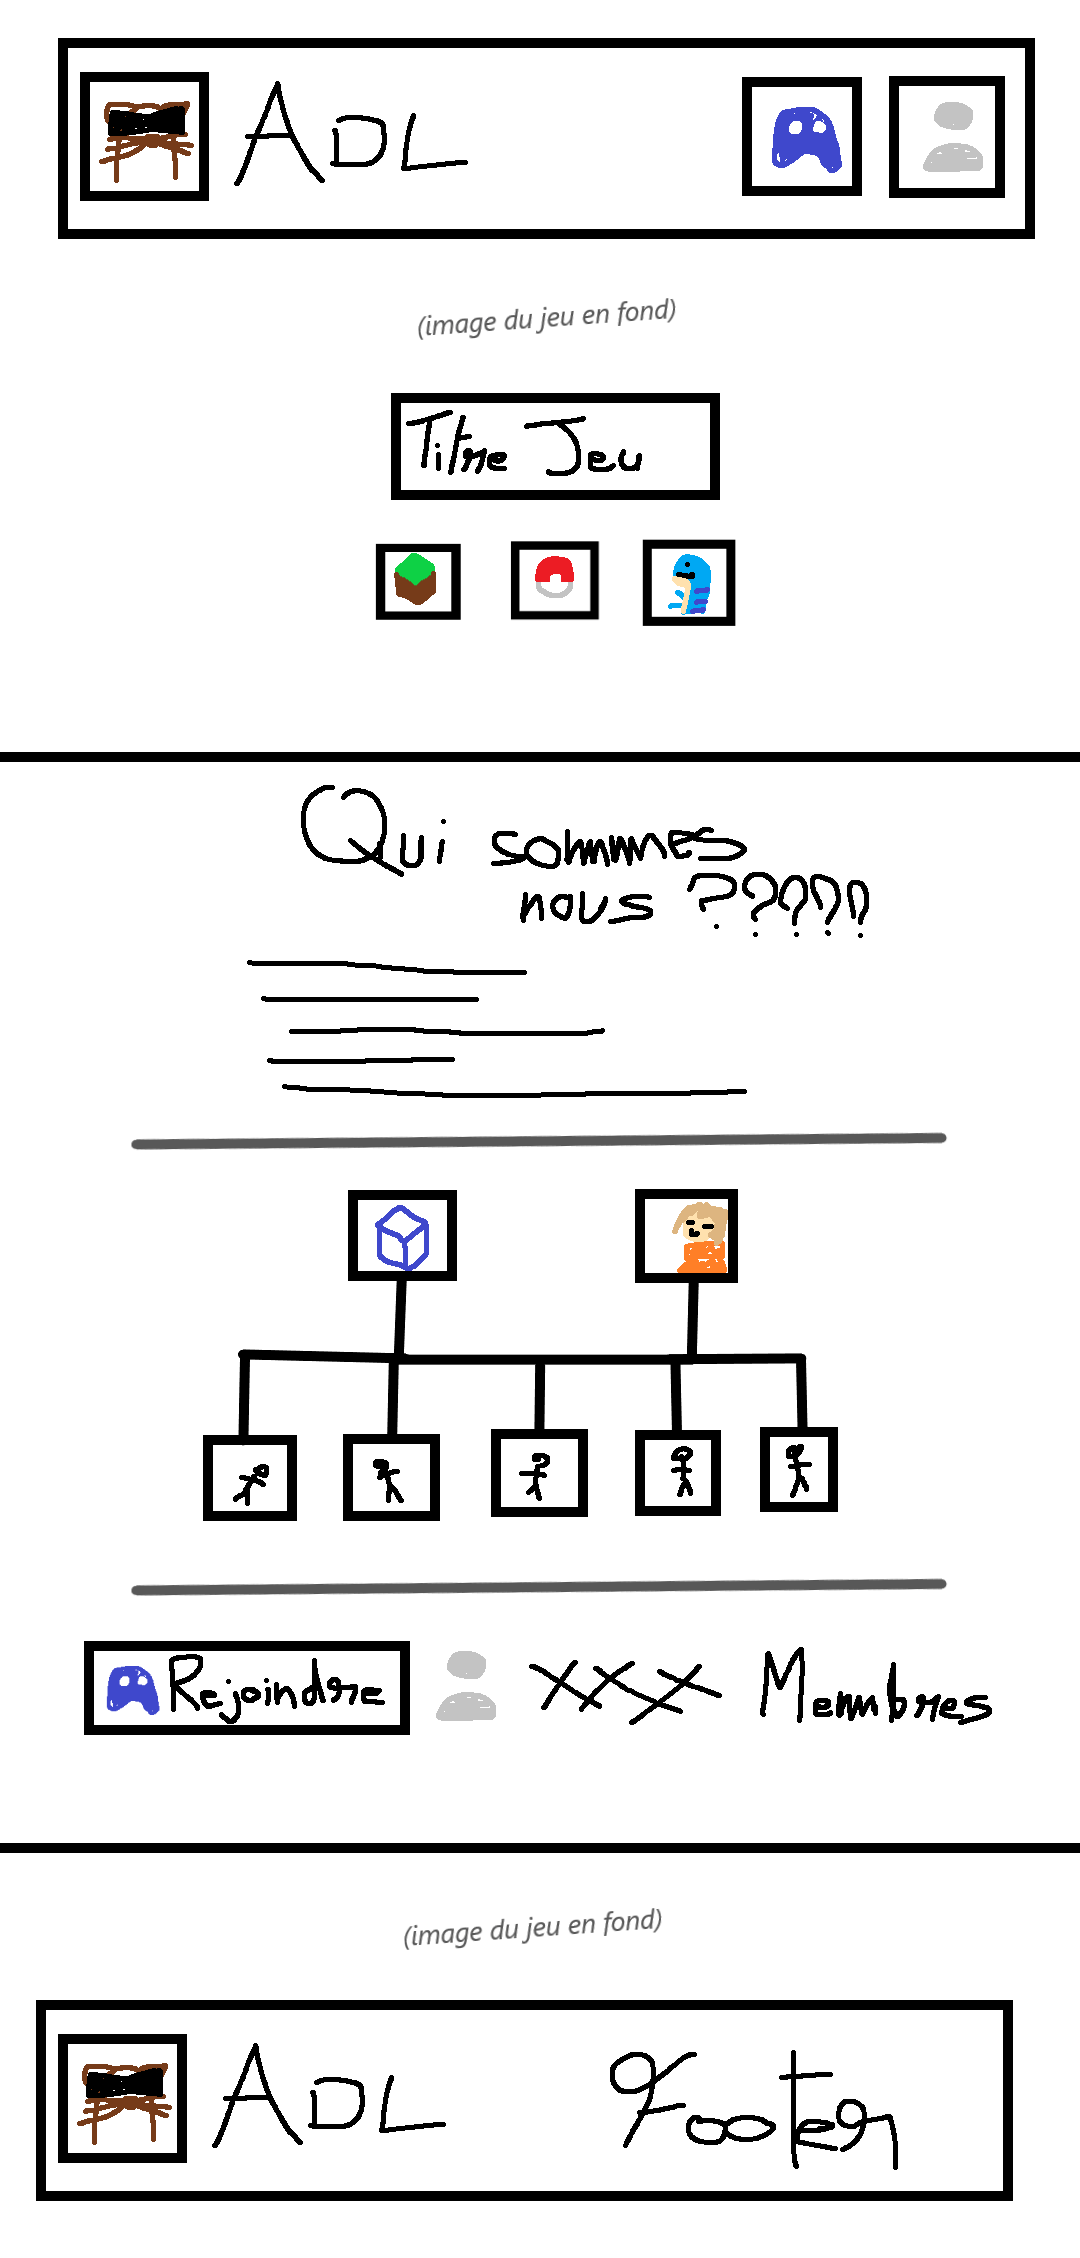 ADL
(image du jeu en fond)
Titre Jeu
Qui sommes
nous ?????
Rejoindre XXX Membres
(image du jeu en fond)
ADL Footer